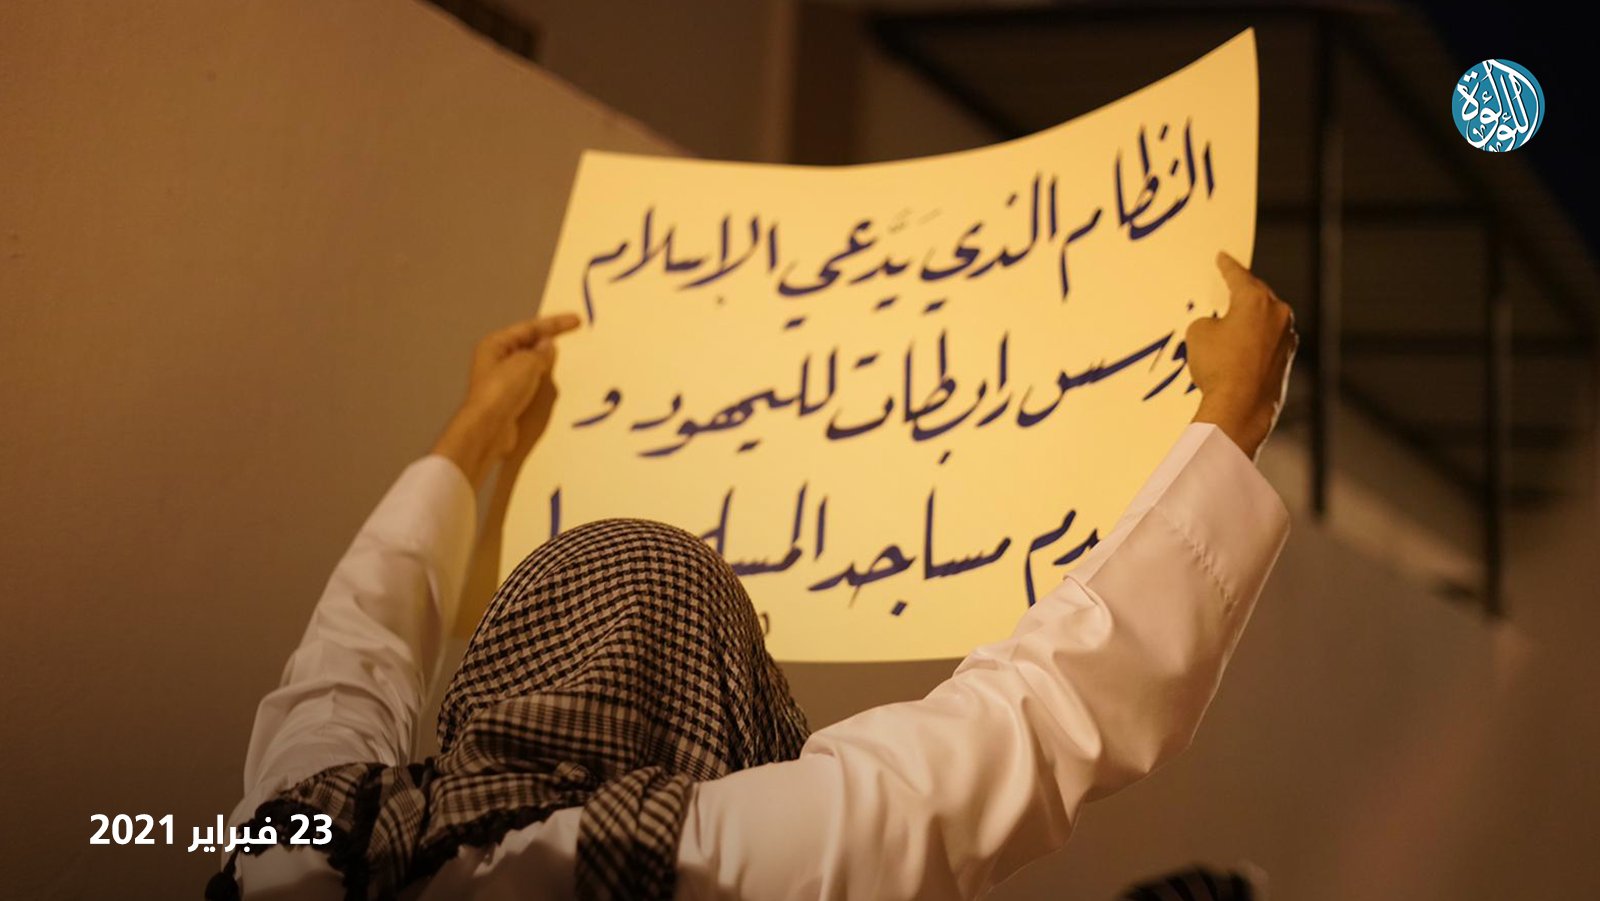 اللؤلؤة
النظام الذي يَدَّعي الإسلام
رابطات لليهود و
مساجد
23 فبراير 2021